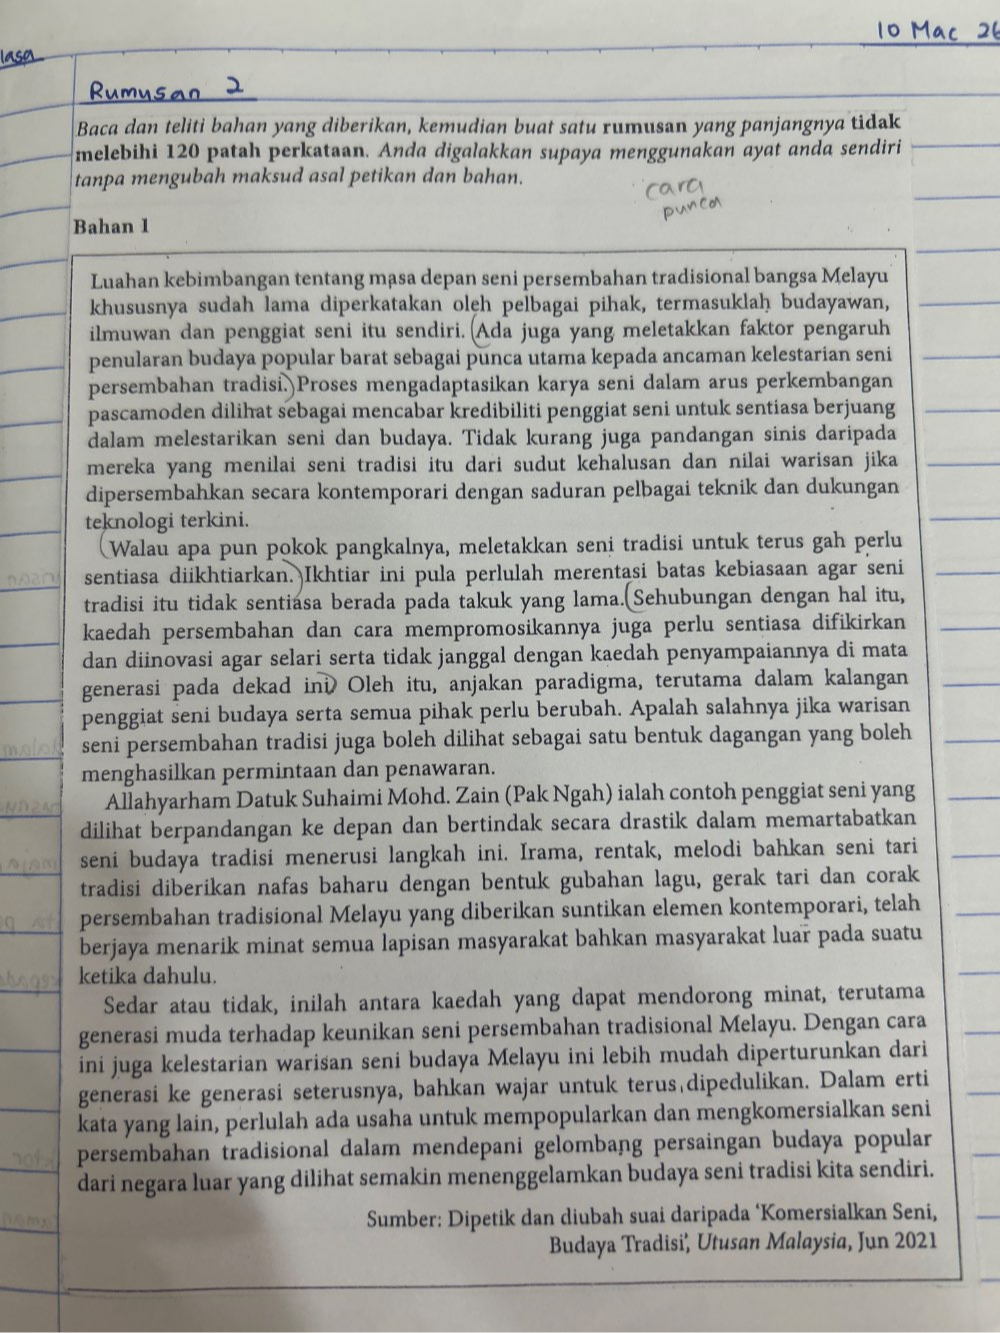 10 Mac 26
lasa
Rumusan 2
Baca dan teliti bahan yang diberikan, kemudian buat satu rumusan yang panjangnya tidak
melebihi 120 patah perkataan. Anda digalakkan supaya menggunakan ayat anda sendiri
tanpa mengubah maksud asal petikan dan bahan.
cara
punca
Bahan 1
Luahan kebimbangan tentang masa depan seni persembahan tradisional bangsa Melayu
khususnya sudah lama diperkatakan oleh pelbagai pihak, termasuklah budayawan,
ilmuwan dan penggiat seni itu sendiri. (Ada juga yang meletakkan faktor pengaruh
penularan budaya popular barat sebagai punca utama kepada ancaman kelestarian seni
persembahan tradisi.) Proses mengadaptasikan karya seni dalam arus perkembangan
pascamoden dilihat sebagai mencabar kredibiliti penggiat seni untuk sentiasa berjuang
dalam melestarikan seni dan budaya. Tidak kurang juga pandangan sinis daripada
mereka yang menilai seni tradisi itu dari sudut kehalusan dan nilai warisan jika
dipersembahkan secara kontemporari dengan saduran pelbagai teknik dan dukungan
teknologi terkini.
(Walau apa pun pokok pangkalnya, meletakkan seni tradisi untuk terus gah perlu
sentiasa diikhtiarkan.) Ikhtiar ini pula perlulah merentasi batas kebiasaan agar seni
tradisi itu tidak sentiasa berada pada takuk yang lama. (Sehubungan dengan hal itu,
kaedah persembahan dan cara mempromosikannya juga perlu sentiasa difikirkan
dan diinovasi agar selari serta tidak janggal dengan kaedah penyampaiannya di mata
generasi pada dekad ini.) Oleh itu, anjakan paradigma, terutama dalam kalangan
penggiat seni budaya serta semua pihak perlu berubah. Apalah salahnya jika warisan
seni persembahan tradisi juga boleh dilihat sebagai satu bentuk dagangan yang boleh
menghasilkan permintaan dan penawaran.
Allahyarham Datuk Suhaimi Mohd. Zain (Pak Ngah) ialah contoh penggiat seni yang
dilihat berpandangan ke depan dan bertindak secara drastik dalam memartabatkan
seni budaya tradisi menerusi langkah ini. Irama, rentak, melodi bahkan seni tari
tradisi diberikan nafas baharu dengan bentuk gubahan lagu, gerak tari dan corak
persembahan tradisional Melayu yang diberikan suntikan elemen kontemporari, telah
berjaya menarik minat semua lapisan masyarakat bahkan masyarakat luar pada suatu
ketika dahulu.
Sedar atau tidak, inilah antara kaedah yang dapat mendorong minat, terutama
generasi muda terhadap keunikan seni persembahan tradisional Melayu. Dengan cara
ini juga kelestarian warisan seni budaya Melayu ini lebih mudah diperturunkan dari
generasi ke generasi seterusnya, bahkan wajar untuk terus dipedulikan. Dalam erti
kata yang lain, perlulah ada usaha untuk mempopularkan dan mengkomersialkan seni
persembahan tradisional dalam mendepani gelombang persaingan budaya popular
dari negara luar yang dilihat semakin menenggelamkan budaya seni tradisi kita sendiri.
Sumber: Dipetik dan diubah suai daripada 'Komersialkan Seni,
Budaya Tradisi', Utusan Malaysia, Jun 2021